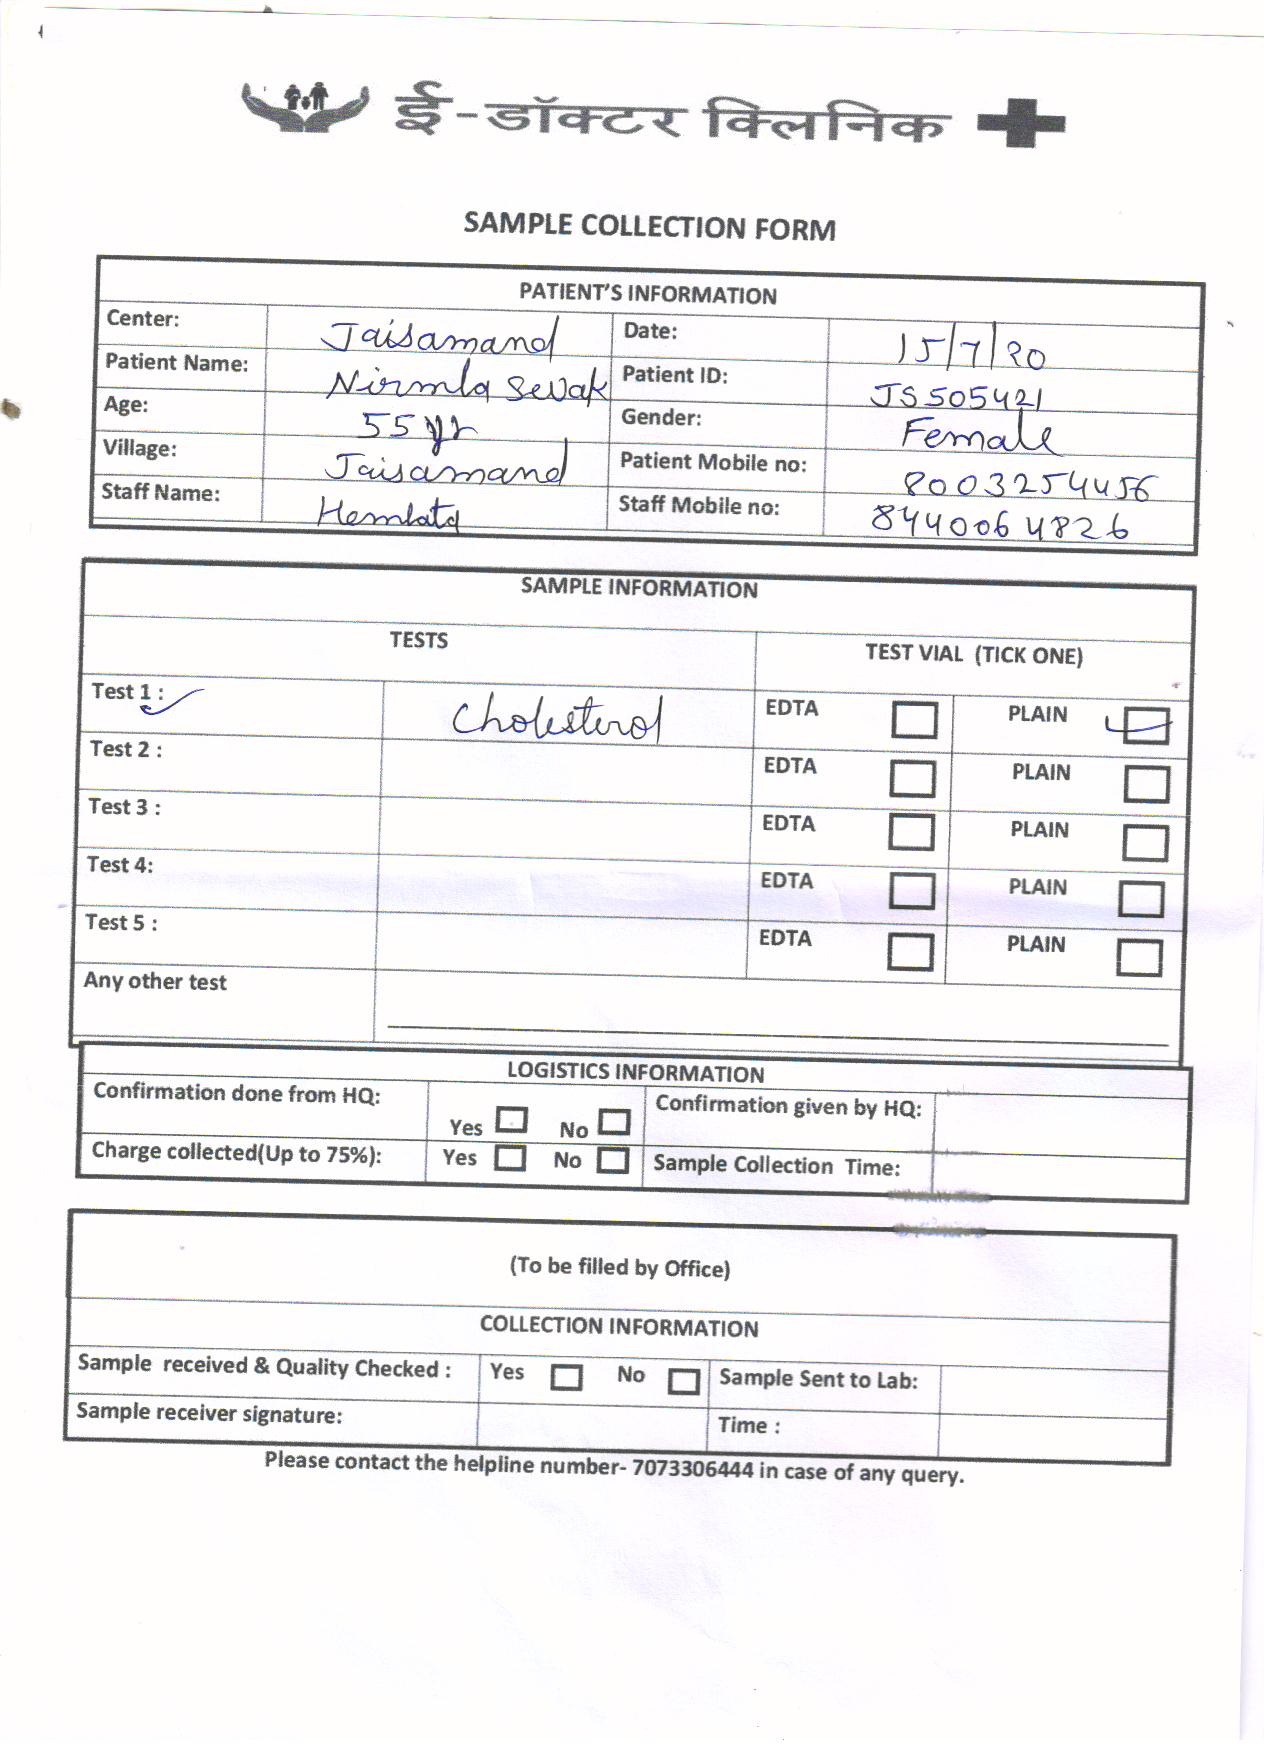 ई-डॉक्टर क्लिनिक
SAMPLE COLLECTION FORM
PATIENT'S INFORMATION
Center: Jaisamand Date: 15/7/20
Patient Name: Nirmla Sevak Patient ID: JS505421
Age: 55 yr Gender: Female
Village: Jaisamand Patient Mobile no: 8003254456
Staff Name: Hemlata Staff Mobile no: 8440064826
SAMPLE INFORMATION
TESTS TEST VIAL (TICK ONE)
Test 1 : Cholesterol EDTA PLAIN
Test 2 : EDTA PLAIN
Test 3 : EDTA PLAIN
Test 4: EDTA PLAIN
Test 5 : EDTA PLAIN
Any other test
LOGISTICS INFORMATION
Confirmation done from HQ: Yes No Confirmation given by HQ:
Charge collected(Up to 75%): Yes No Sample Collection Time:
(To be filled by Office)
COLLECTION INFORMATION
Sample received & Quality Checked : Yes No Sample Sent to Lab:
Sample receiver signature: Time :
Please contact the helpline number- 7073306444 in case of any query.